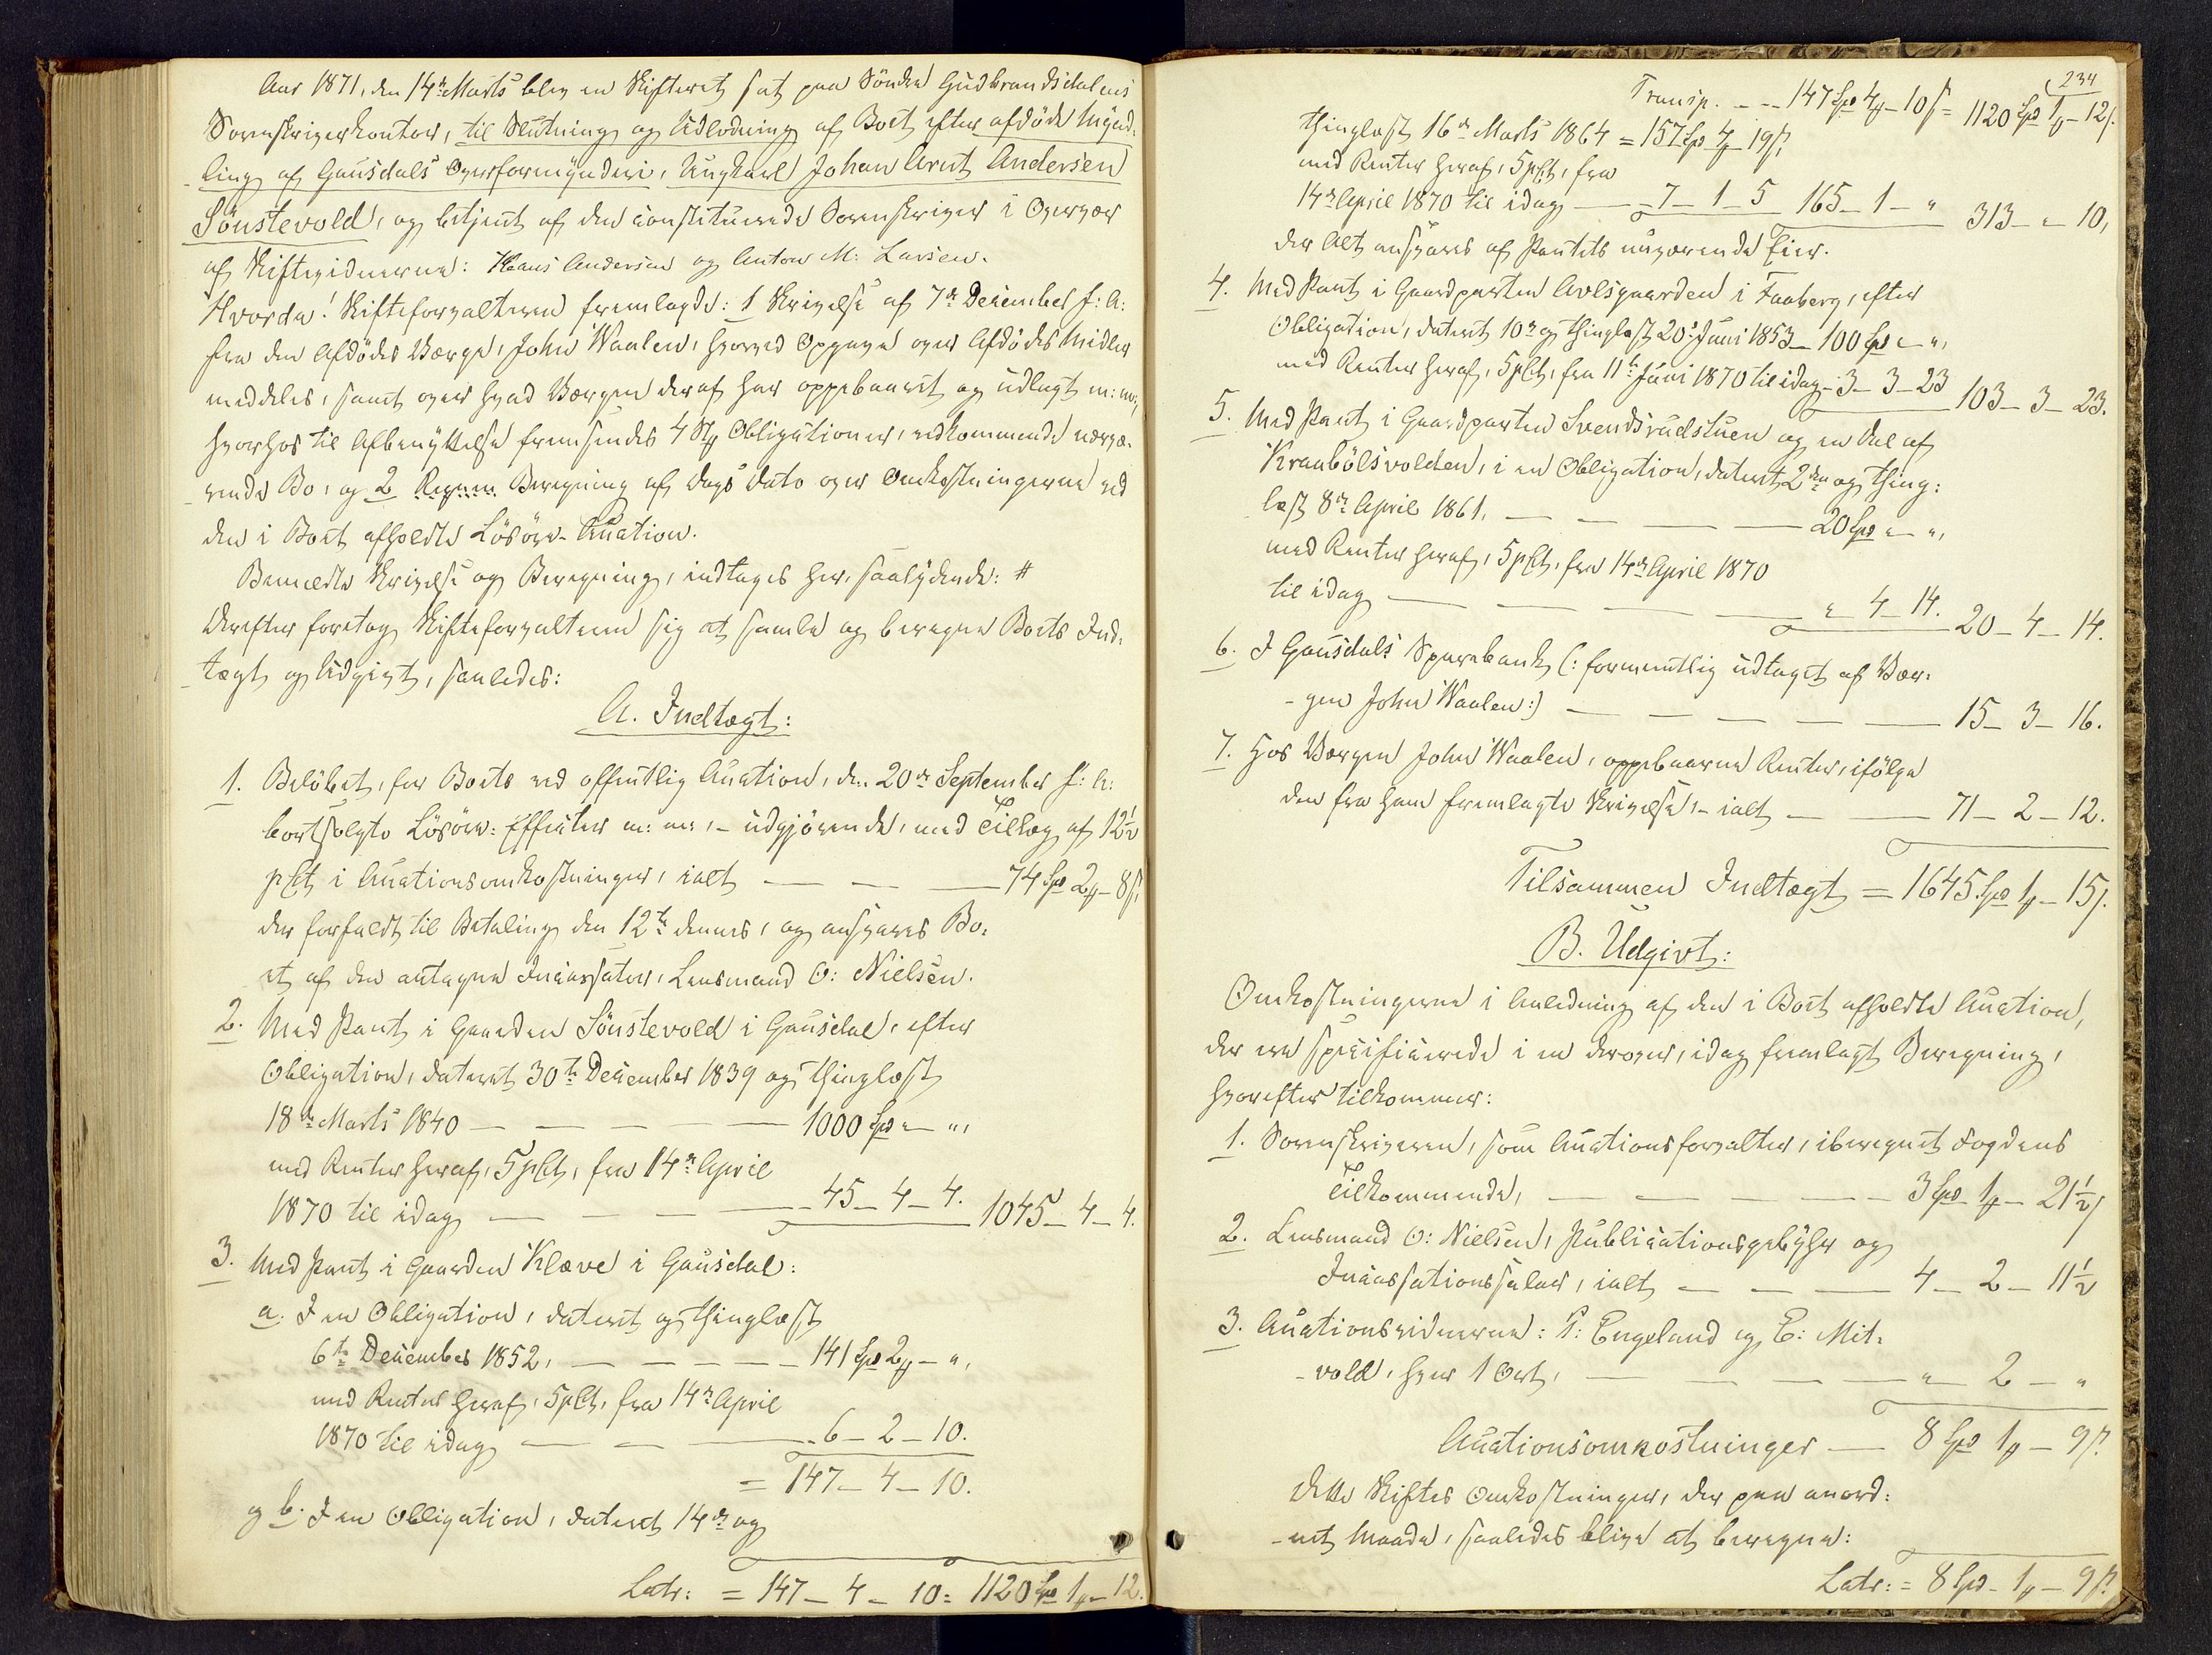 Aar 1871, den 14de Marts blev en Skifteret sat paa Söndre Gudbrandsdalens
Sorenskriverkontor, til Slutning og Udlodning af Boet efter afdöde Mynd-
ling af Gausdals Overformynderi, Ungkarl Johan Arnt Andersen
Sönstevold, og betjent af den constituerede Sorenskriver i Overvær
af Skiftevidnerne: Hans Andersen og Anton M: Larsen.
Hvorda! Skifteforvalteren fremlagde: 1 Skrivelse af 7de December f: A:
fra den Afdödes Værge, John Waalen, hvorved Opgave over Afdödes Midler
meddeles, samt over hvad Værgen deraf har oppebaaret og udlagt m: m;
hvorhos til Afbenyttelse fremsendes 4 St Obligationer, vedkommende nærvæ-
rende Bo, og 2 Beregning af Dags Dato over Omkostningerne ved
den i Boet afholdte Lösöre-Auction.
Bemeldte Skrivelse og Beregning, indtages her, saalydende: #
Derefter foretog Skifteforvalteren sig at samle og beregne Boets Ind-
tægt og Udgivt, saaledes:
A. Indtægt:
1. Belöbet, for Boets ved offentlig Auction, den 20de September f: A:
bortsolgte Lösöre-Effecter m: m:, - udgjörende, med Tillæg af 12½
pCt i Auctionsomkostninger, ialt — — — 74 Spd 2# - 8ß,
der forfaldt til Betaling den 12te dennes, og ansvares Bo-
et af den antagne Incassator, Lensmand O: Nielsen.
2. Med Pant i Gaarden Sönstevold i Gausdal, efter
Obligation, dateret 30te December 1839 og thinglæst
18de Marts 1840 — — — — 1000 Spd " — ",
med Renter heraf, 5 pCt, fra 14de April
1870 til idag — — — 45 - 4 - 4. 1045 - 4 - 4.
3. Med Pant i Gaarden Klæve i Gausdal:
a. I en Obligation, dateret og thinglæst
6te December 1852, — — — — 141 Spd 2# - ",
med Renter heraf, 5 pCt, fra 14de April
1870 til idag — — — 6 - 2 - 10.
= 147 - 4 - 10.
og b. I en Obligation, dateret 14de og
Latr: = 147 - 4 - 10 = 1120 Spd 1# - 12.
234
Transp. - - - 147 Spd 4# - 10ß = 1120 Spd 1# - 12ß.
thinglæst 16de Marts 1864 = 157 Spd 4# 19ß,
med Renter heraf, 5 pCt, fra
14de April 1870 til idag — 7 - 1 - 5 165 - 1 - " 313 - " - 10,
der Alt ansvares af Pantets nuværende Eier.
4. Med Pant i Gaardparten Avlsgaarden i Faaberg, efter
Obligation, dateret 10de og thinglæst 20de Juni 1853 - 100 Spd " - ",
med Renter heraf, 5 pCt, fra 11te Juni 1870 til idag - 3 - 3 - 23 103 - 3 - 23.
5. Med Pant i Gaardparten Svendsrudstuen og en Del af
Kraabölsvolden, i en Obligation, dateret 2den og thing-
læst 8de April 1861, — — — — 20 Spd " - ",
med Renter heraf, 5 pCt, fra 14de April 1870
til idag — — — — " 4 - 14. 20 - 4 - 14.
6. I Gausdals Sparebank (: formentlig udtaget af Vær-
gen John Waalen :) — — — — — 15 - 3 - 16.
7. Hos Værgen John Waalen, oppebaarne Renter, ifölge
den fra ham fremlagte Skrivelse, - ialt — — 71 - 2 - 12.
Tilsammen Indtægt = 1645 Spd 1# - 15ß.
B. Udgivt:
Omkostningerne i Anledning af den i Boet afholdte Auction,
der ere specificerede i en derover, idag fremlagt Beregning,
hvorefter tilkommer:
1. Sorenskriveren, som Auctionsforvalter, iberegnet Fogdens
Tilkommende, — — — — — 3 Spd 1# - 21½ß
2. Lensmand O: Nielsen, Publicationsgebyhr og
Incassationssalær, ialt — — — 4 - 2 - 11½
3. Auctionsvidnerne: P: Engeland og E: Mit-
vold, hver 1 Ort, — — — — " - 2 - "
Auctionsomkostninger — 8 Spd 1# - 9ß.
Dette Skiftes Omkostninger, der paa anord-
net Maade, saaledes blive at beregne:
Latr: = 8 Spd - 1# - 9ß.